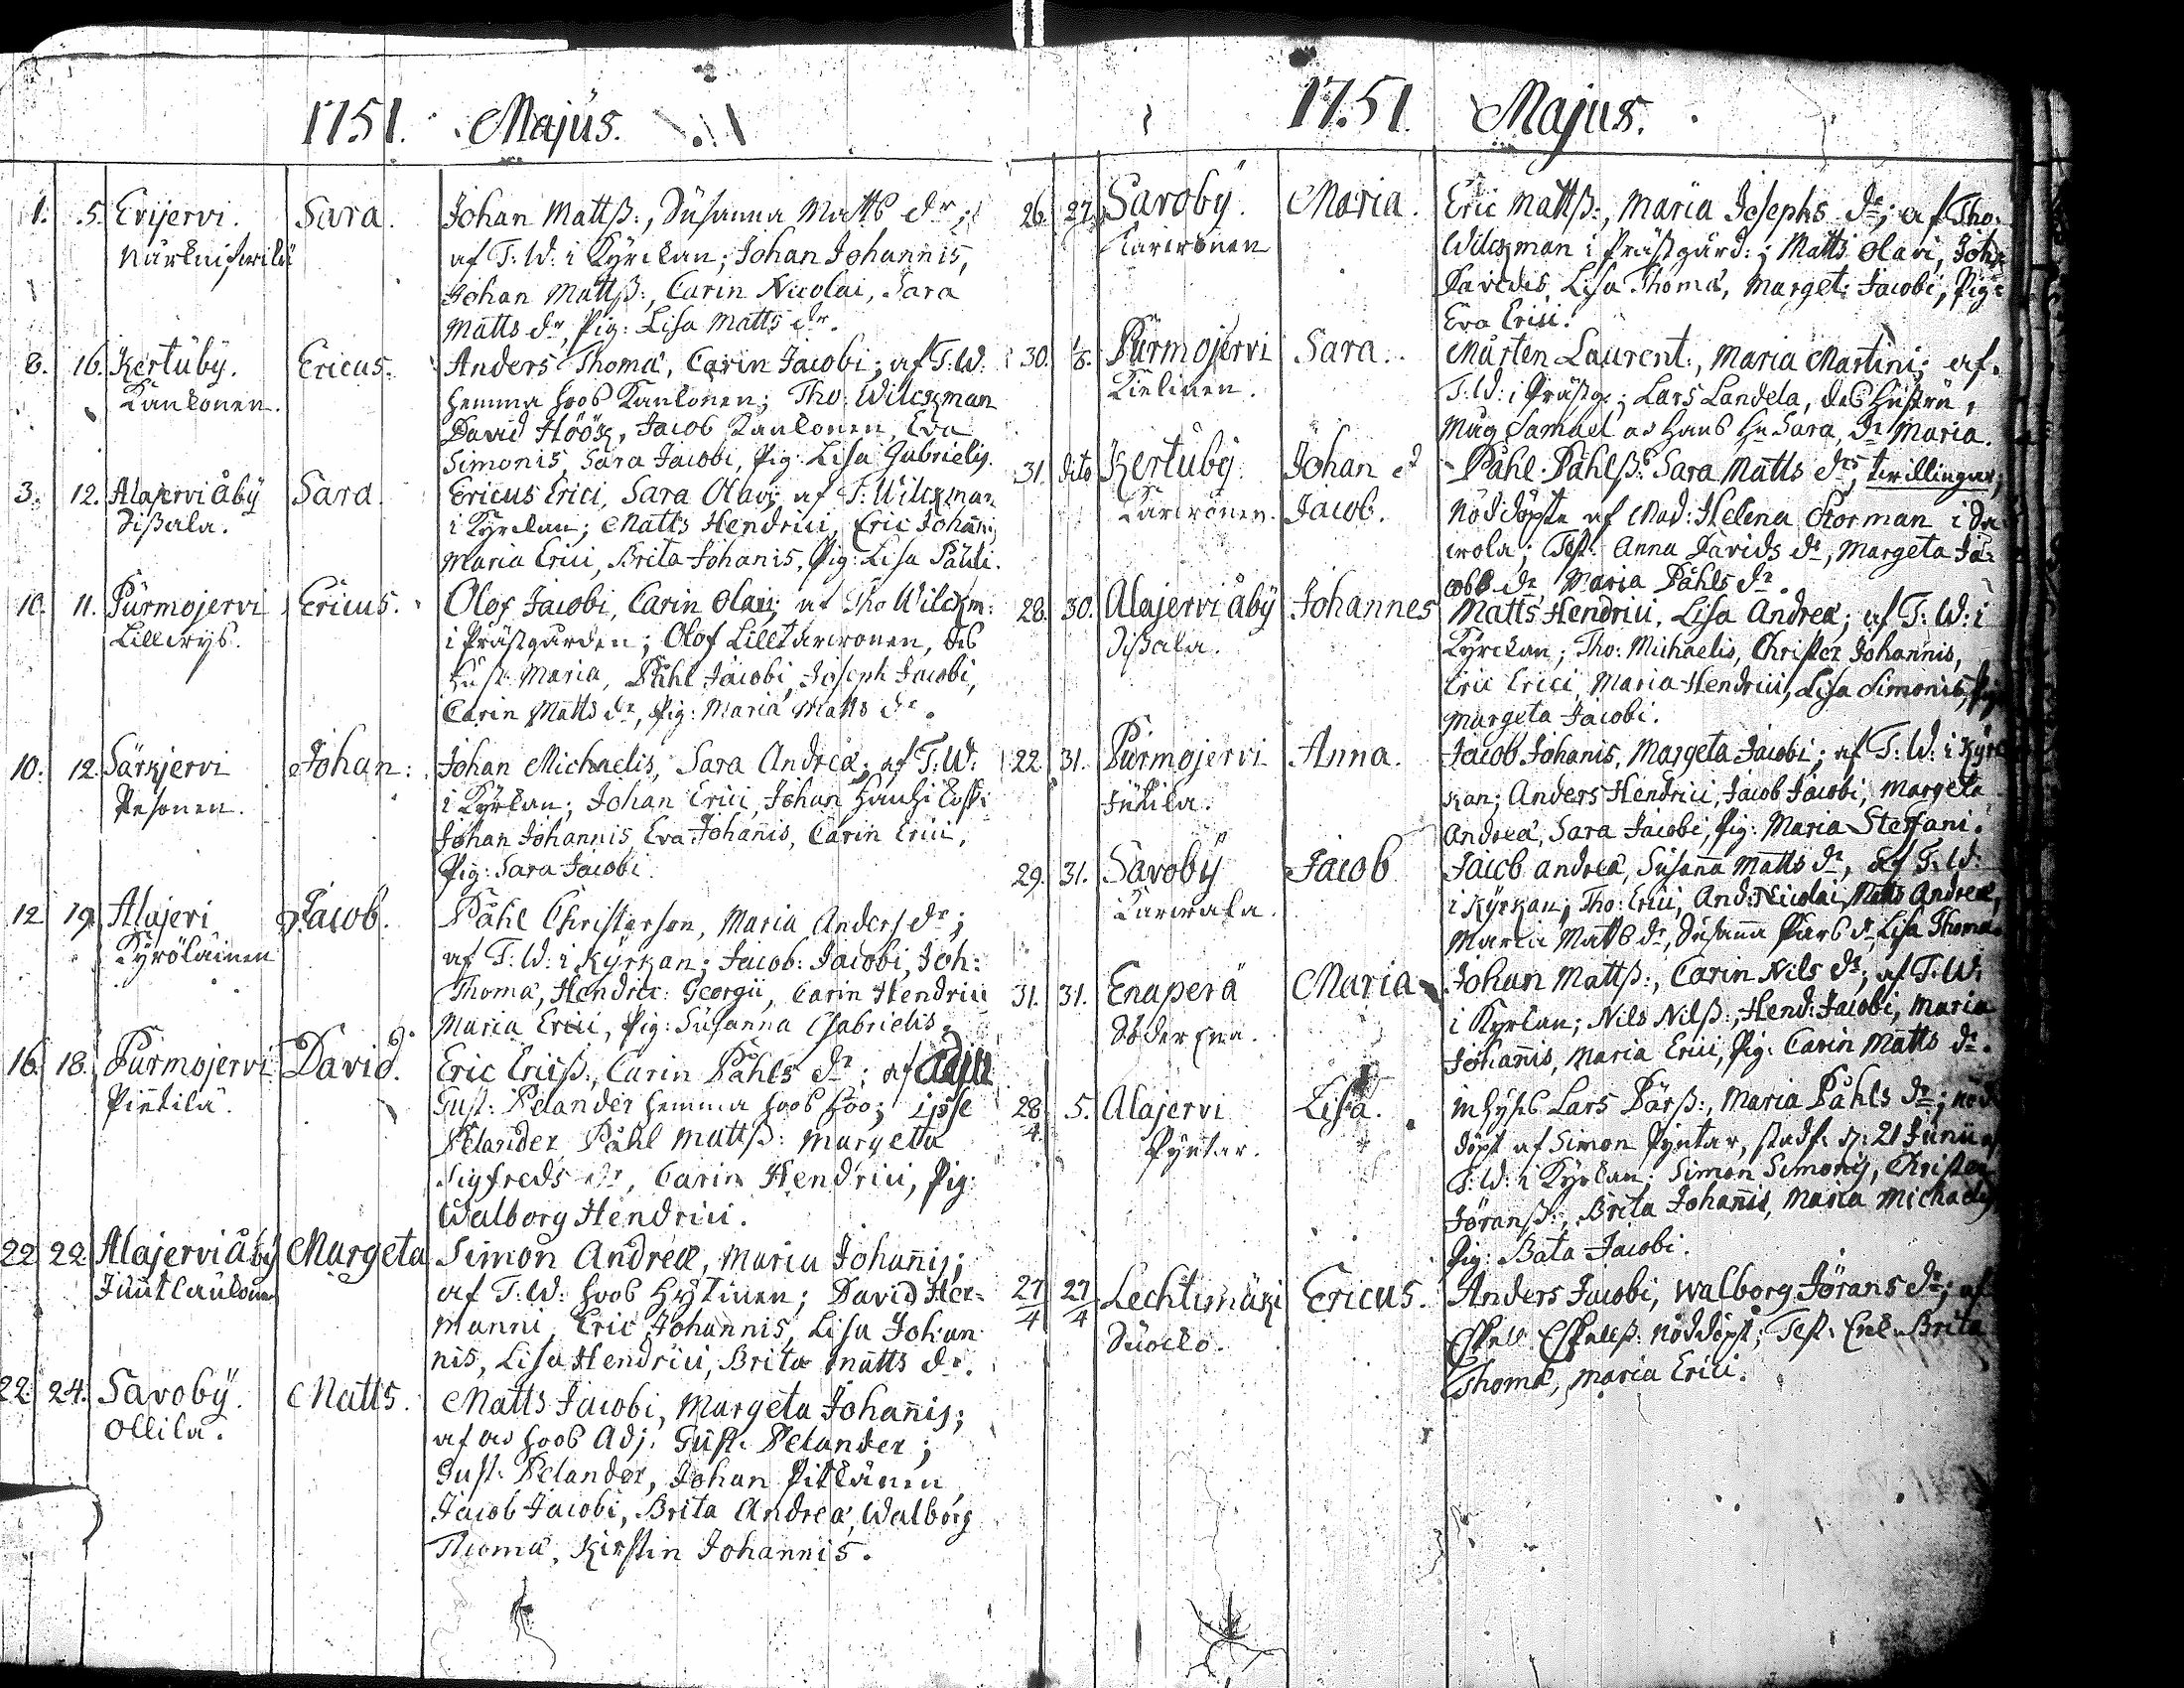 1751. Majus.
1. 5. Evijervi. Sara. Johan Mattß:, Susanna Matts dr;
af T: W: i Kyrckan; Johan Johannis,
Johan Mattß:, Carin Nicolai, Sara
Matts dr, Pig: Lisa Matts dr.
8. 16. Kertuby. Ericus. Anders Thomæ, Carin Jacobi; af T: W:
Kaukonen. hemma hoos Kaukonen; Tho: Wilckman
David Höök, Jacob Kaukonen, Eva
Simonis, Sara Jacobi, Pig: Lisa Gabrielis.
3. 12. Alajervi åby Sara. Ericus Erici, Sara Olavi; af T: Wilckman
Dißala. i Kyrckan; Matts Hendrici, Eric Johañis,
Maria Erici, Brita Johanis, Pig: Lisa Pauli.
10. 11. Purmojervi Ericus. Olof Jacobi, Carin Olavi; af Tho Wilckm:
i Prästgården; Olof
Hust: Maria, Påhl Jacobi, Joseph Jacobi,
Carin Matts dr, Pig: Maria Matts dr.
10. 12. Särkjervi Johan: Johan Michaelis, Sara Andreæ; af T: W:
Pesonen. i Kyrkan; Johan Erici, Johan
Johan Johannis, Eva Johañis, Carin Erici,
Pig: Sara Jacobi.
12 19 Alajervi Jacob. Påhl Christerson, Maria Anders dr;
Kyröläinen af T: W: i Kyrkan; Jacob: Jacobi, Joh:
Thomæ, Hendric: Georgii, Carin Hendrici
Maria Erici, Pig: Susanna Gabrielis.
16. 18. Purmojervi David. Eric Ericß:, Carin Påhls dr; af Adju
Pietilä. Gust: Pelander hemma hoos hoo; ipse
Pelander, Påhl Mattß: Margetta
Sigfreds dr, Carin Hendrici, Pig:
Walborg Hendrici.
22 22 Alajervi åby Margeta Simon Andreæ, Maria Johañis;
af T: W: hoos Hytinen; David Her=
manni, Eric Johannis, Lisa Johan
nis, Lisa Hendrici, Brita Matts dr.
22. 24. Savoby. Matts. Matts Jacobi, Margeta Johañis;
Ollila. hoos Adj: Gust: Pelander;
Gust: Pelander, Johan Pitkänen,
Jacob Jacobi, Brita Andreæ, Walborg
Thomæ, Kirstin Johannis.
1751. Majus.
26. 27. Savoby. Maria. Eric Mattß:, Maria Josephs dr; af Tho:
Karvonen Wilckman i Prästgård:; Matts Olavi, Joha
Davidis, Lisa Thomæ, Marget: Jacobi, Pig:
Eva Erici.
30. Purmojervi Sara. Mårten Laurent:, Maria Martini; af
Kielinen. T: W: i Prästg:; Lars Landela, des Hustru,
Måg Samuel Hans Hu Sara, dr Maria.
31. dito Kertuby. Johan et Påhl Påhlß: Sara Matts dr, twillingar,
Karvonen. Jacob. Nöddöpte af Mad: Helena Forman i Sa
wola; Test: Anna Davids dr, Margeta Ja=
cobs dr, Maria Påhls dr.
28. 30. Alajervi åby Johannes Matts Hendrici, Lisa Andreæ; af T: W: i
Dißala. Kyrckan; Tho: Michaelis, Christer Johannis,
Eric Erici, Maria Hendrici, Lisa Simonis, Pig
Margeta Jacobi.
22 31. Purmojervi Anna. Jacob Johanis, Margeta Jacobi; af T: W: i Kyrc
kan; Anders Hendrici, Jacob Jacobi, Margeta
Andreæ, Sara Jacobi, Pig: Maria Steffani.
29. 31. Savoby Jacob Jacob Andreæ, Susaña Matts dr, af T: W:
i Kyrkan; Tho: Erici, And: Nicolai, Matts Andreæ,
Maria Matts dr, Susaña dr Lisa Thomæ.
31. 31. Enaperä Maria Johan Mattß:, Carin Nils dr; af T: W:
Söder Ena. i Kyrkan; Nils Nilß:, Hend: Jacobi, Maria
Johañis, Maria Erici, Pig: Carin Matts dr.
28/4. 5. Alajervi Lisa. Inhyss Lars Pärß:, Maria Påhls dr; nöd
Pyntar. döpt af Simon Pyntar, stadf: d: 21 Junii af
T: W: i Kyrkan; Simon Simonis, Christer
Jöranß:, Brita Johañis, Maria Michaelis,
Pig: Jacobi.
27/4 27/4 Lechtimäki Ericus. Anders Jacobi, Walborg Jörans dr; af
nöddöpt; Test: Brita
Thomæ, Maria Erici.